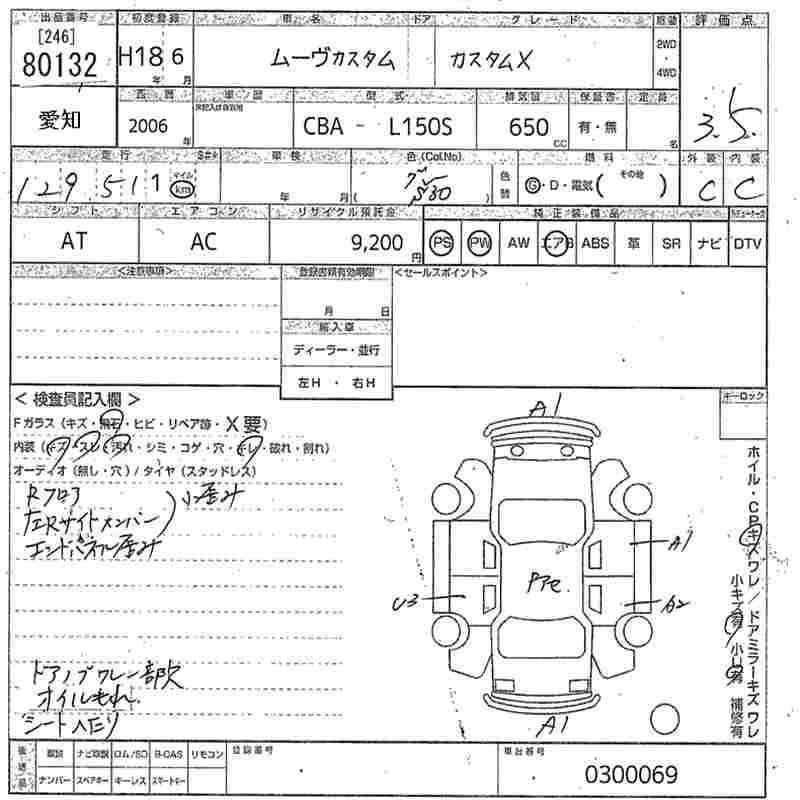 出品番号 初度登録 車名 ドア グレード 駆動 評価点
[246]
80132 H18 6 ムーヴカスタム カスタムX 2WD ・ 4WD
年 月
西暦 車ノ歴 型式 排気量 保証書 定員
愛知 2006 年 CBA - L150S 650 CC 有・無 名 3.5
走行 車検 色(Col.No) 燃料 外装 内装
129,517 マイル km 年 月 ( S30 ) 色替 G・D・電気( その他 ) C C
シフト エアコン リサイクル預託金 純正装備品
AT AC 9,200 円 PS PW AW エアB ABS 革 SR ナビ DTV
<注意事項> 登録書類有効期限 <セールスポイント>
月 日
輸入車
ディーラー・並行
左H ・ 右H
<検査員記入欄> キーロック
Fガラス(キズ・飛石・ヒビ・リペア跡・X要)
内装(キズ・スレ・汚れ・シミ・コゲ・穴・キレ・破れ・割れ)
オーディオ(無し・穴)/タイヤ(スタッドレス)
Rフロア
左Rサイドメンバー 小歪み
エンドパネル歪み
A1
A1
U3 A2
A1
ホイル・CPキズワレ/ドアミラーキズワレ
小キズ有 小凹有 補修有
ドアノブワレ一部欠
オイルもれ
シートヘたり
後送品 取説 ナビ取説 ロム/SD B-CAS リモコン 登録番号 車台番号
ナンバー スペアキー キーレス スマートキー 0300069